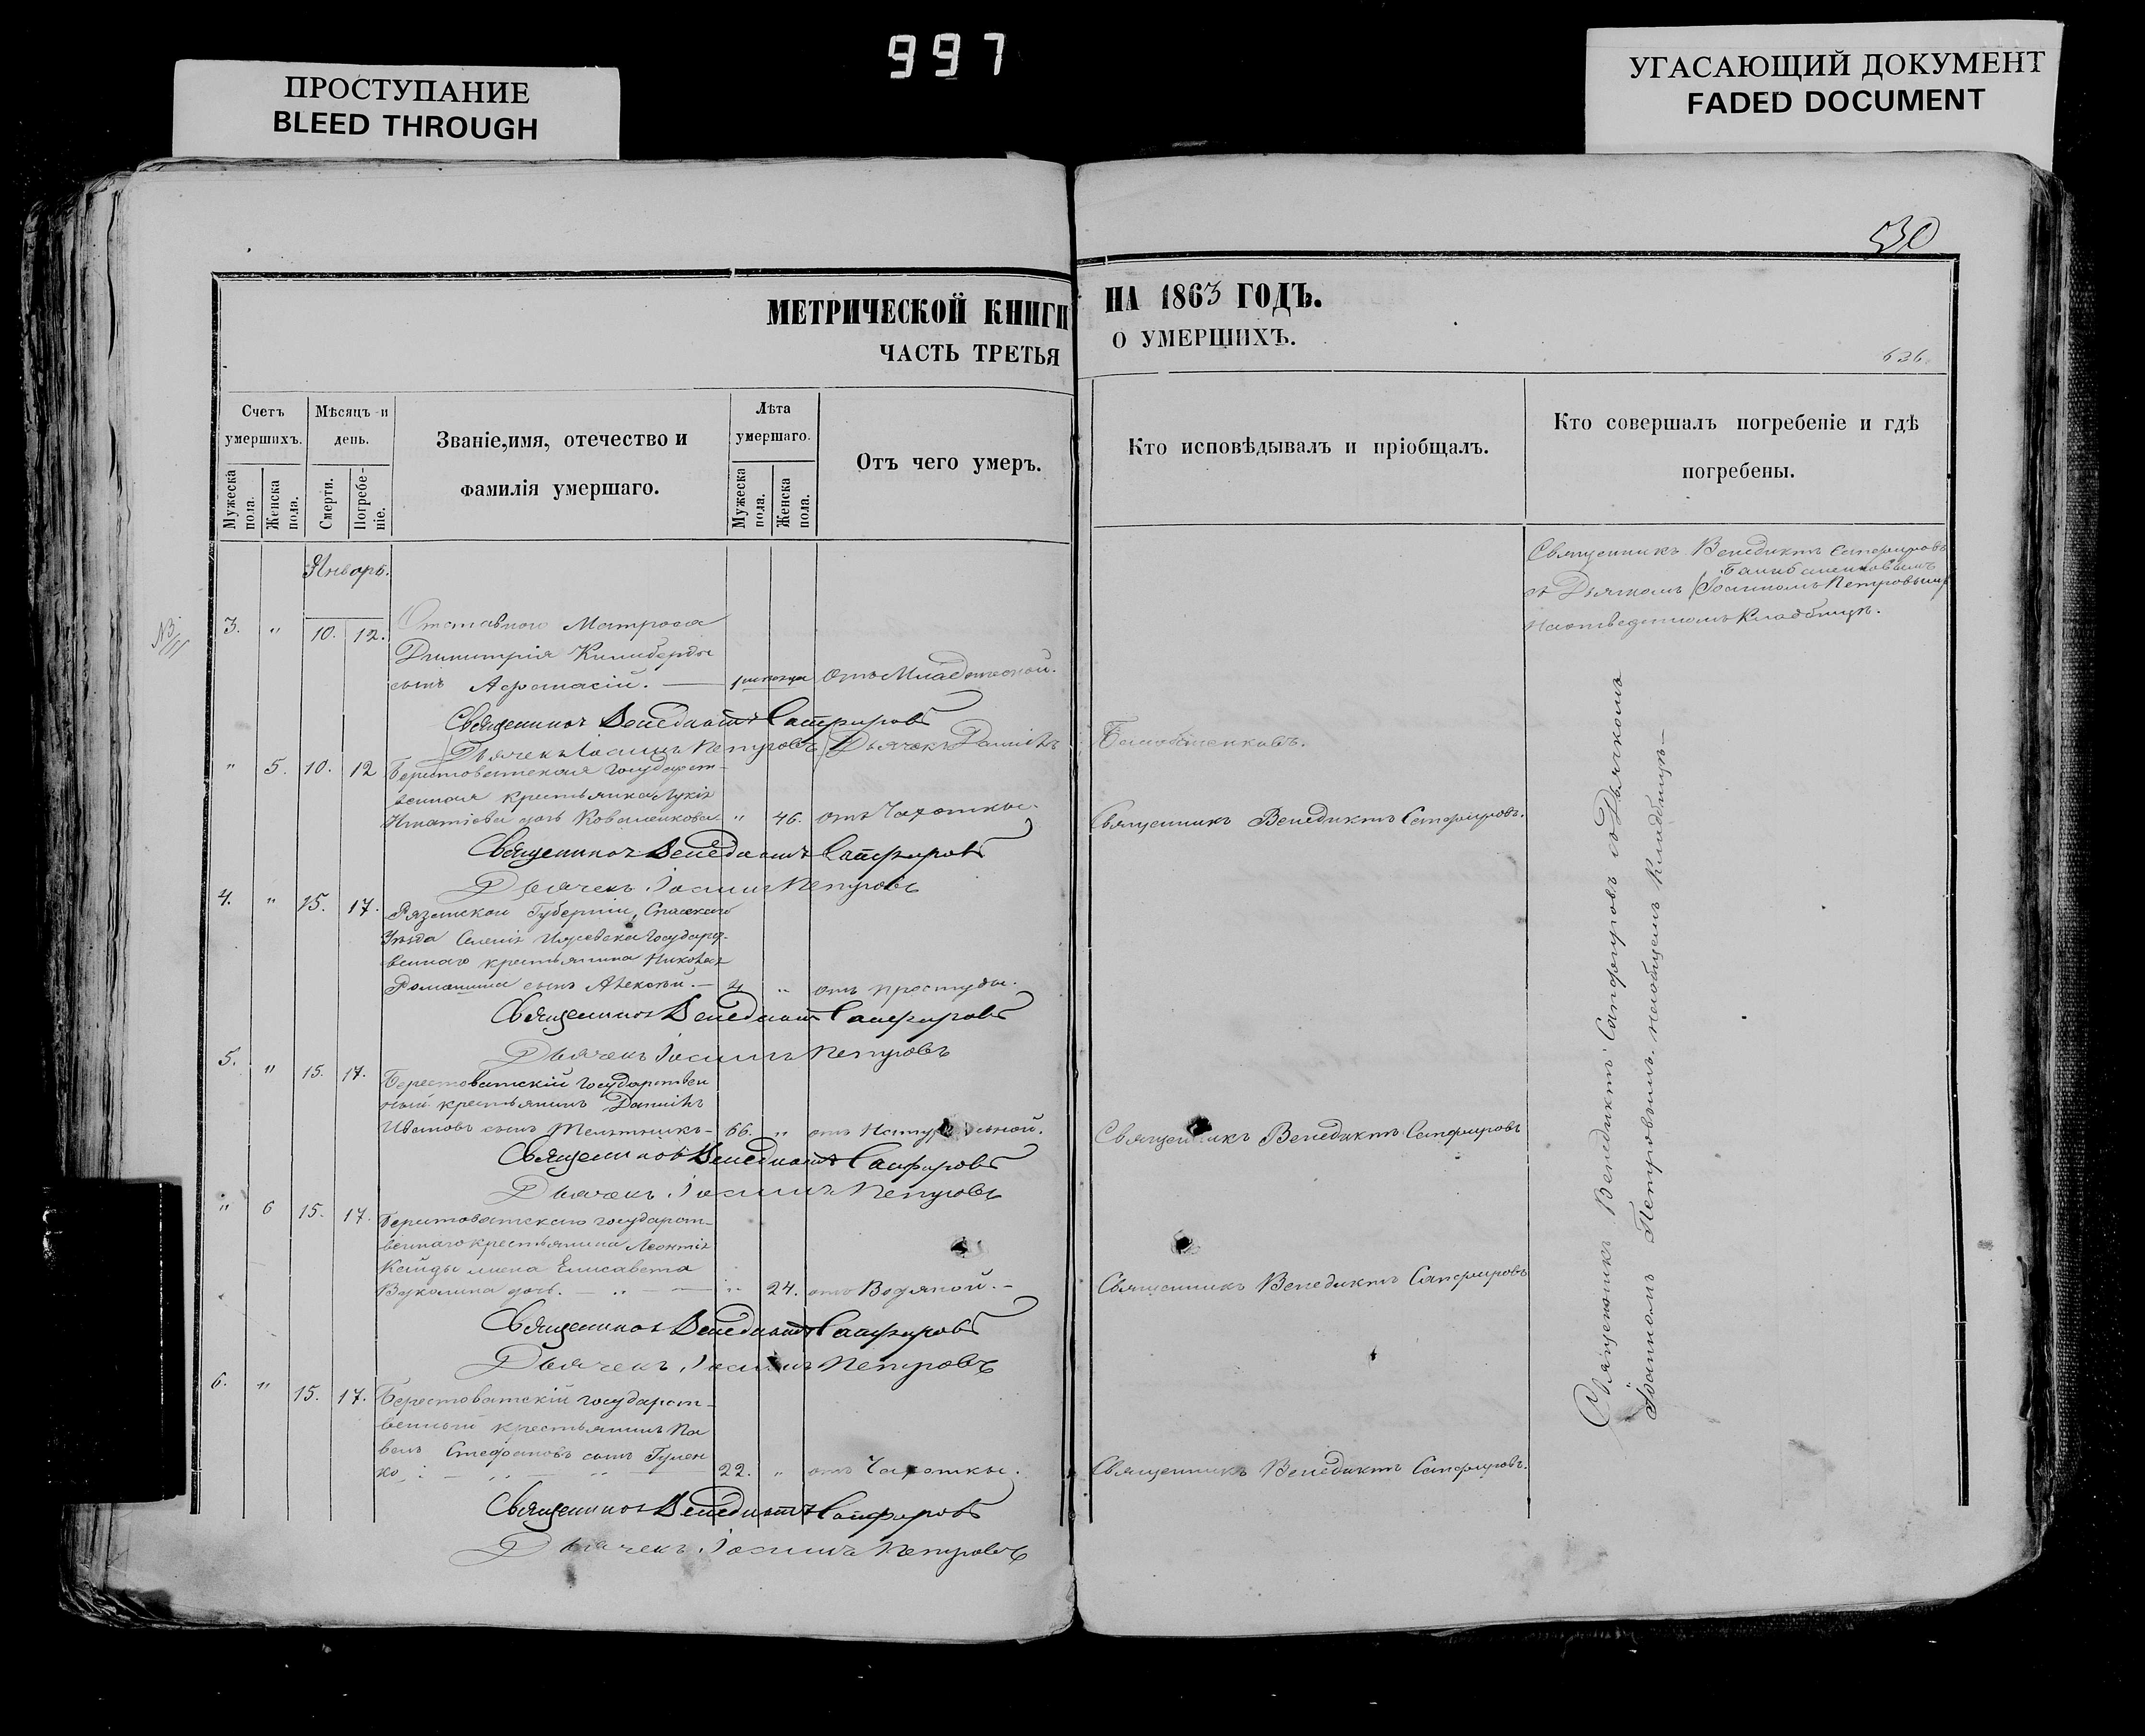 997
ПРОСТУПАНИЕ
BLEED THROUGH
УГАСАЮЩИЙ ДОКУМЕНТ
FADED DOCUMENT
530
МЕТРИЧЕСКОЙ КНИГИ НА 1863 ГОДЪ.
ЧАСТЬ ТРЕТЬЯ О УМЕРШИХЪ.
626.
Счетъ умершихъ.
Мужеска пола.
Женска пола.
Мѣсяцъ и день.
Смерти.
Погребеніе.
Званіе,имя, отечество и
фамилія умершаго.
Лѣта умершаго.
Мужеска пола.
Женска пола.
Отъ чего умеръ.
Кто исповѣдывалъ и пріобщалъ.
Кто совершалъ погребеніе и гдѣ
погребены.
Январь.
Священникъ Венедиктъ Сапфировъ
съ Дьячкомъ Іоанномъ Петровымъ
Кладбищѣ.
3. " 10. 12. Отставного Матроса
Димитрія
сынъ Афанасій. — отъ Младенческой.
Священникъ Венедиктъ Сапфировъ
Дьячекъ Іоаннъ Петровъ Дьячекъ Даніилъ
" 5. 10. 12 Берестоватская государст-
венная крестьянка Лукія
Игнатіева дочь Коваленкова " 46. отъ Чахотки. Священникъ Венедиктъ Сапфировъ.
Священникъ Венедиктъ Сапфировъ
Дьячекъ Іоаннъ Петровъ
4. " 15. 17. Рязанской Губерніи, Спасскаго
Уѣзда Селенія Ижевска государст-
веннаго крестьянина Николая
Романина сынъ Алексѣй. — 4 " отъ простуды.
Священникъ Венедиктъ Сапфировъ
Дьячекъ Іоаннъ Петровъ
5. " 15. 17. Берестоватскій государствен
ный крестьянинъ Даніилъ
Ивановъ сынъ Мельникъ - 66. " отъ Натуральной. Священникъ Венедиктъ Сапфировъ
Священникъ Венедиктъ Сапфировъ
Дьячекъ Іоаннъ Петровъ
" 6 15. 17. Берестоватскаго государст-
веннаго крестьянина Леонтія
Кайды жена Елисавета
Вуколина дочь. — " — " 24. отъ Водяной. — Священникъ Венедиктъ Сапфировъ
Священникъ Венедиктъ Сапфировъ
Дьячекъ Іоаннъ Петровъ
6. " 15. 17. Берестоватскій государст-
венный крестьянинъ Па
велъ Стефановъ сынъ Гумен
ко 22. " отъ Чахотки. Священникъ Венедиктъ Сапфировъ.
Священникъ Венедиктъ Сапфировъ
Дьячекъ Іоаннъ Петровъ
Священникъ Венедиктъ Сапфировъ съ Дьячкомъ
Іоанномъ Петровымъ. на общемъ Кладбищѣ —